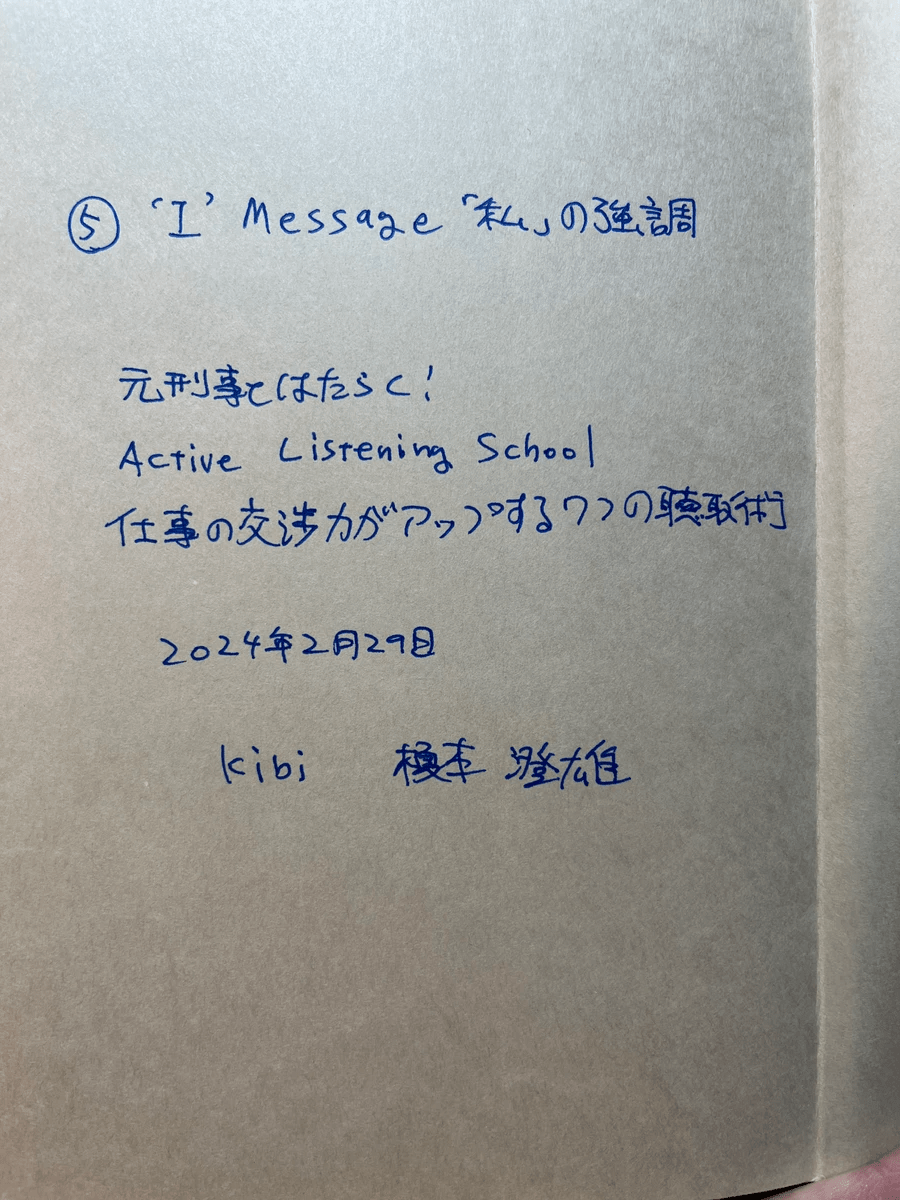 ⑤ 'I' Message 「私」の強調
元刑事とはたらく!
Active Listening School
仕事の交渉力がアップする7つの聴取術
2024年2月29日
kibi 榎本 澄雄